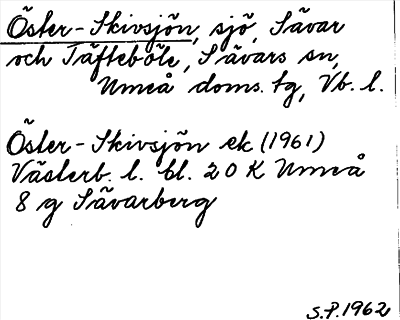 Öster-Skivsjön, sjö, Sävar
och Täfteböle, Sävars sn,
Umeå doms. tg, Vb. l.
Öster-Skivsjön ek (1961)
Västerb. l. bl. 20 K Umeå
8 g Sävarberg
S.P. 1962